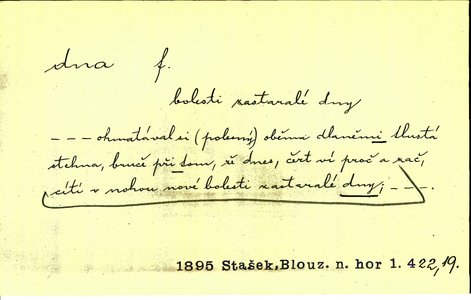 dna f.
bolesti zastaralé dny
– – – ohmatával si (polesný) oběma dlaněmi tlustá
stehna, bruče při tom, že dnes, čert ví proč a zač,
cítí v nohou nové bolesti zastaralé dny; – – –.
1895 Stašek, Blouz. n. hor 1. 422, 19.